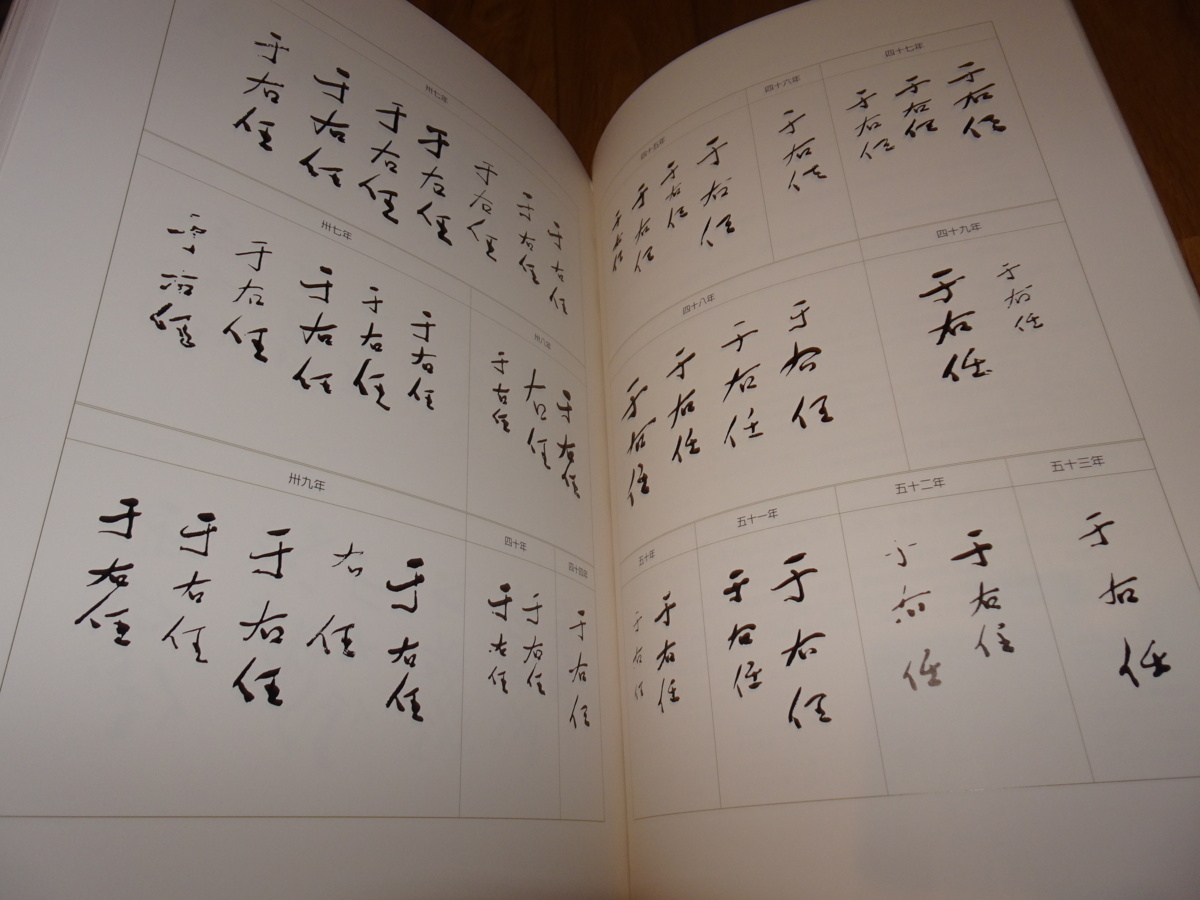 卅七年
于右任
于右任
于右任
于右任
于右任
于右任
于右任
卅七年
于右任
于右任
于右任
于右任
于右任
卅八年
于右任
右任
于右任
卅九年
于右任
于右任
于右任
右任
于右任
四十年
于右任
于右任
四十四年
于右任
四十五年
于右任
于右任
于右任
于右任
四十六年
于右任
四十七年
于右任
于右任
于右任
四十八年
于右任
于右任
于右任
于右任
四十九年
于右任
于右任
五十年
于右任
于右任
五十一年
于右任
于右任
五十二年
于右任
于右任
五十三年
于右任